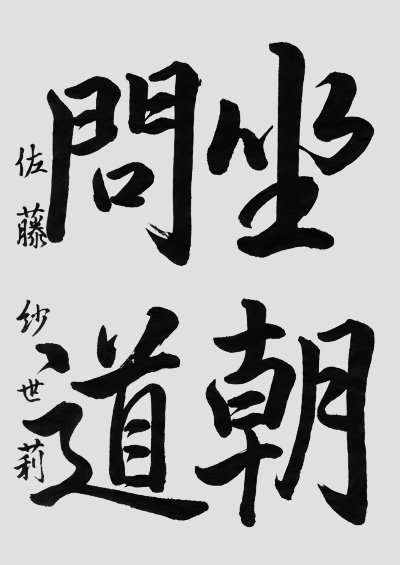 坐朝
問道
佐藤紗世莉